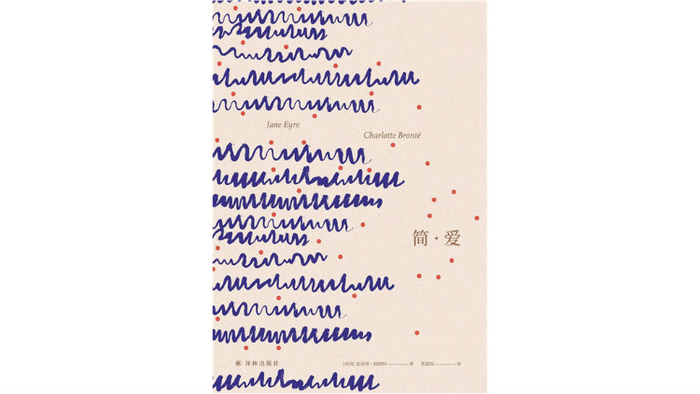 Jane Eyre
Charlotte Brontë
简·爱
译林出版社
著
译